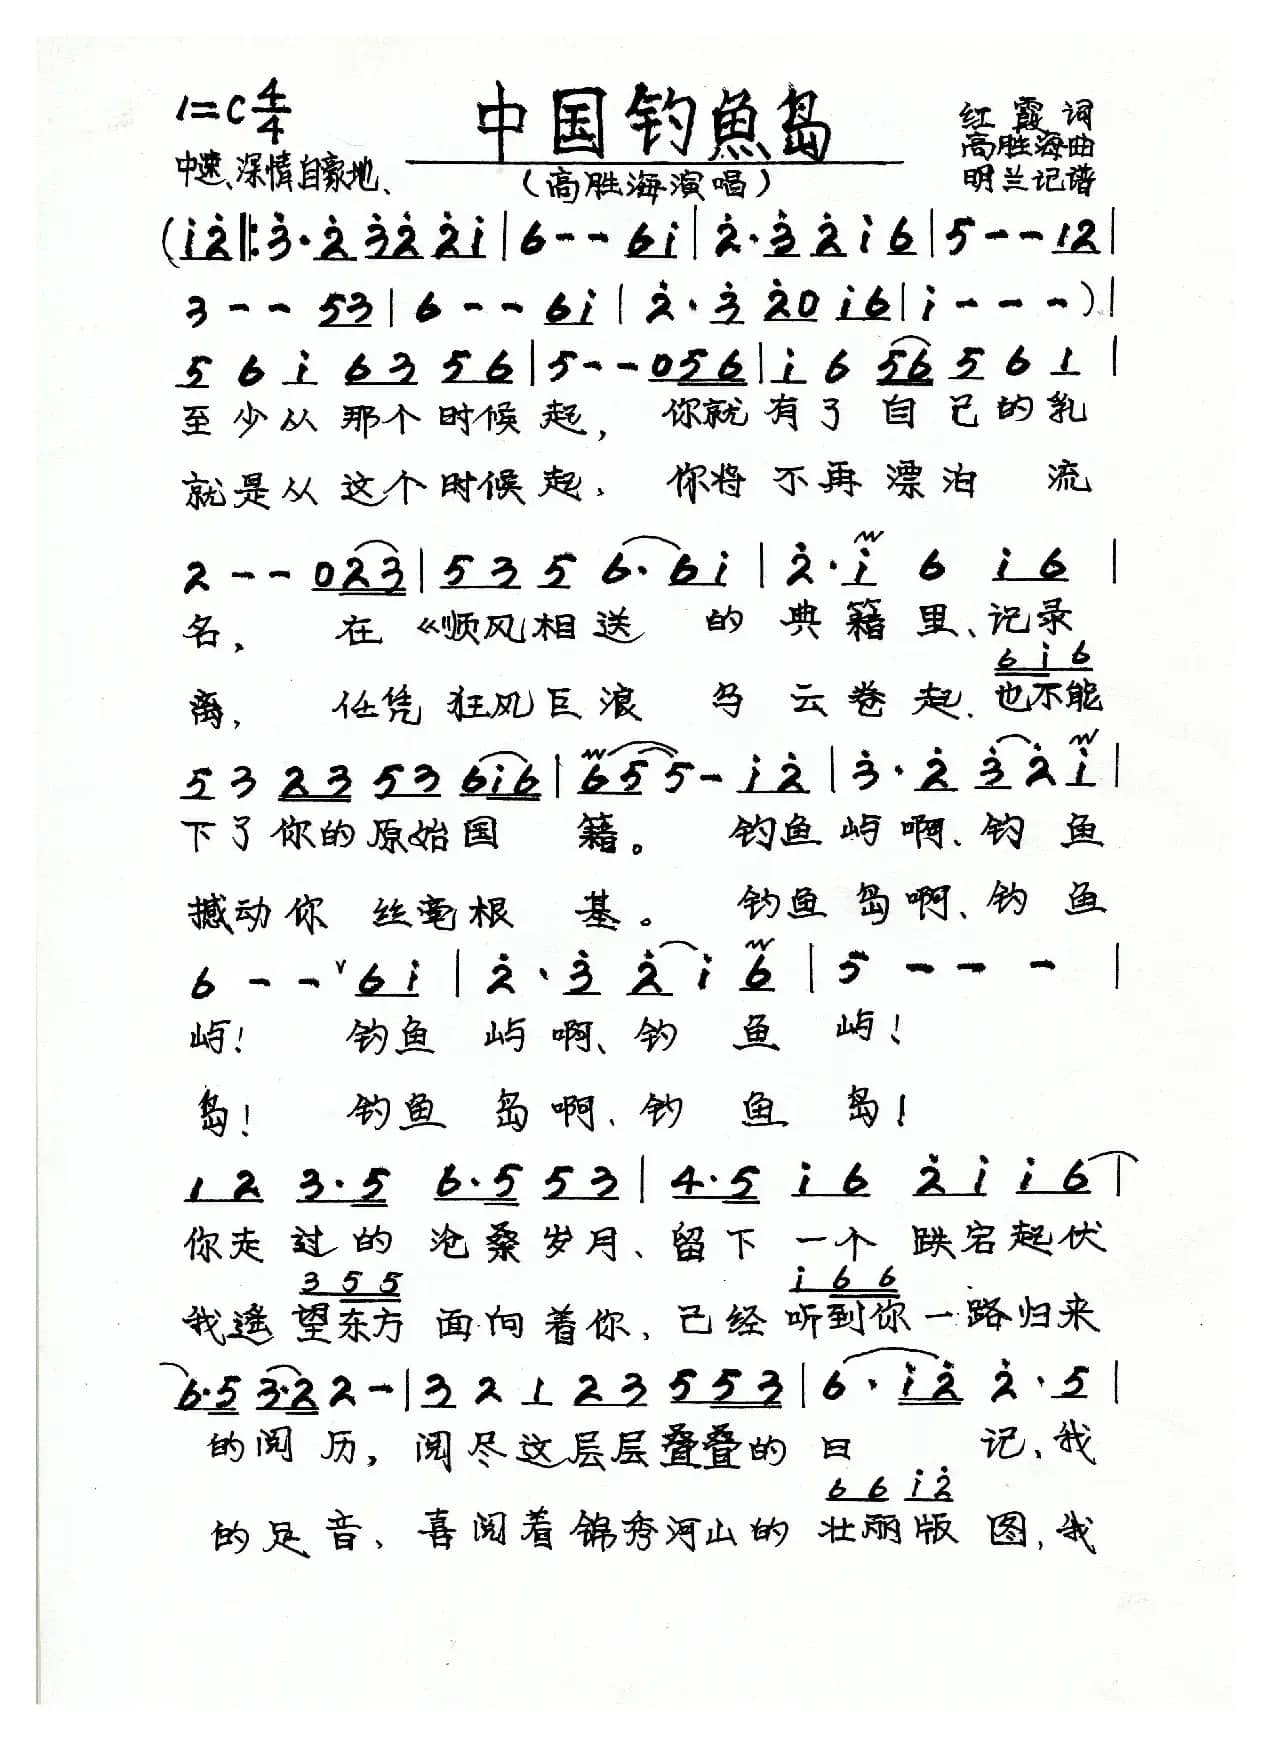 1=C 4/4 中国钓魚岛 红霞词
高胜海曲
中速、深情自豪地、 (高胜海演唱) 明兰记谱
(i̇ 2̇ ‖: 3̇· 2̇ 3̇ 2̇ 2̇ i̇ | 6 - - 6 i̇ | 2̇· 3̇ 2̇ i̇ 6 | 5 - - 1 2 |
3 - - 5 3 | 6 - - 6 i̇ | 2̇· 3̇ 2̇ 0 i̇ 6 | i̇ - - - ) |
5 6 i̇ 6 3 5 6 | 5 - - 0 5 6 | i̇ 6 5 6 5 6 1 |
至少从那个时候起, 你就有了自己的乳
就是从这个时候起、 你将不再漂泊流
2 - - 0 2 3 | 5 3 5 6· 6 i̇ | 2̇· i̇ 6 i̇ 6 |
名, 在《顺风相送 的典籍里、记录
6 i̇ 6
离, 任凭狂风巨浪 乌云卷起、也不能
5 3 2 3 5 3 6 i̇ 6 | 6 5 5 - i̇ 2̇ | 3̇· 2̇ 3̇ 2̇ i̇ |
下了你的原始国籍。 钓鱼屿啊、钓鱼
撼动你丝毫根基。 钓鱼岛啊、钓鱼
6 - - ᵛ 6 i̇ | 2̇· 3̇ 2̇ i̇ 6 | 5 - - - |
屿! 钓鱼屿啊、钓鱼屿!
岛! 钓鱼岛啊、钓鱼岛!
1 2 3· 5 6· 5 5 3 | 4· 5 i̇ 6 2̇ i̇ i̇ 6 |
你走过的沧桑岁月、留下一个跌宕起伏
3 5 5 i̇ 6 6
我遙望东方面向着你、已经听到你一路归来
6· 5 3· 2 2 - | 3 2 1 2 3 5 5 3 | 6· i̇ 2̇ 2̇· 5 |
的阅历, 阅尽这层层叠叠的日记、我
6 6 i̇ 2̇
的足音、喜阅着锦秀河山的壮丽版图, 我